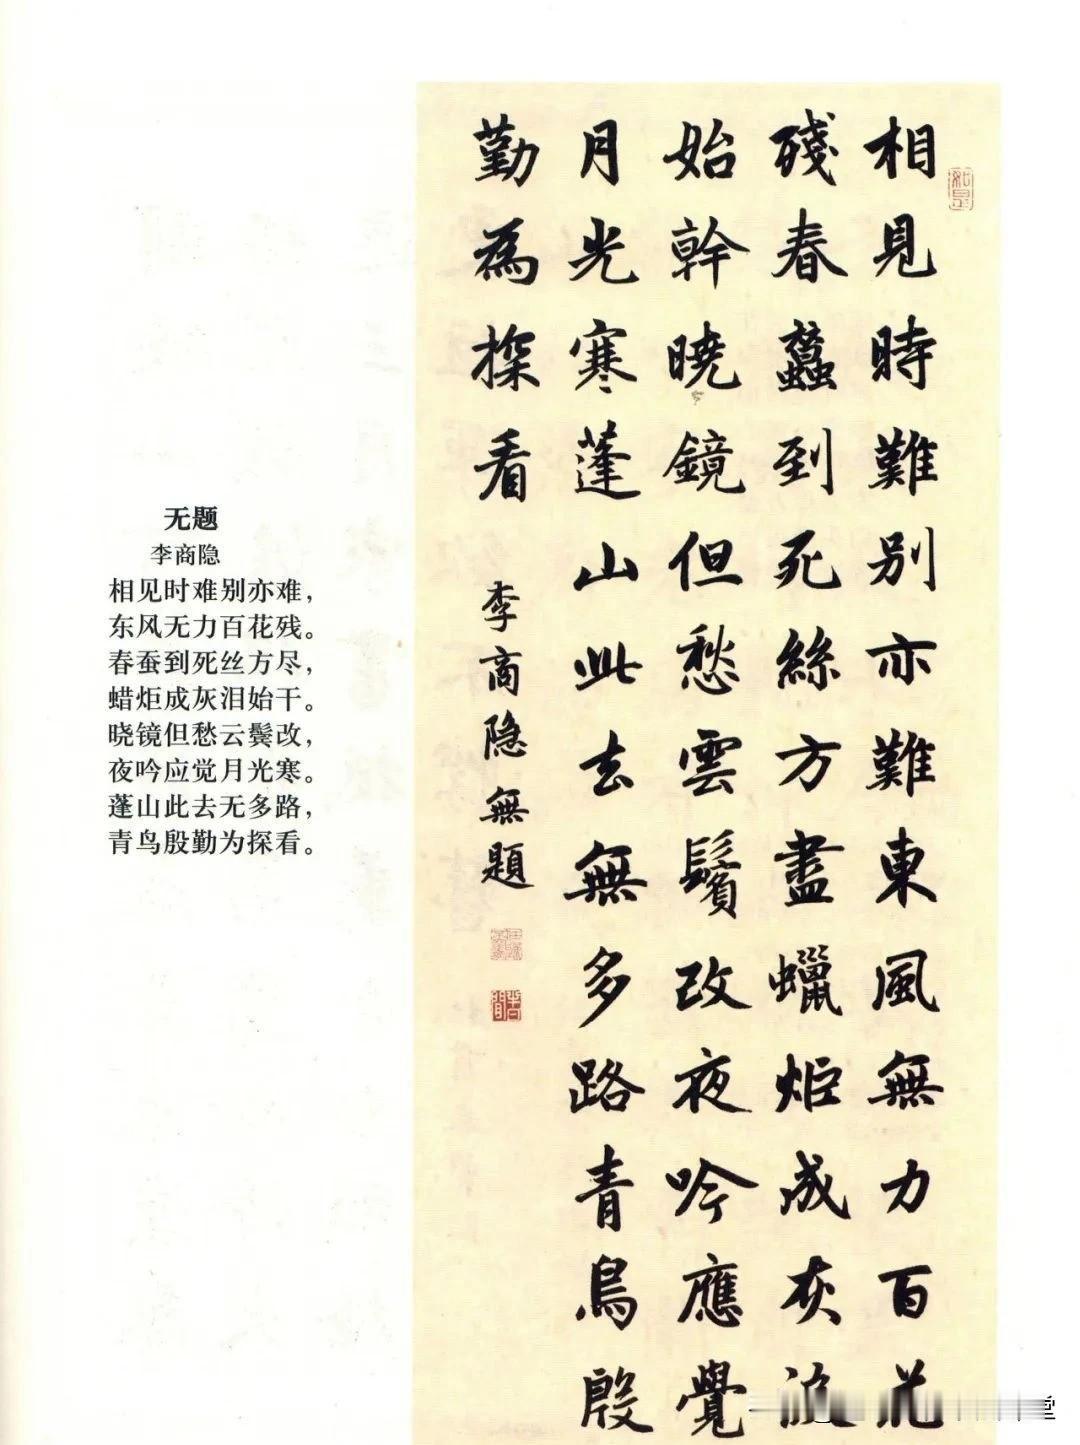 无题
李商隐
相见时难别亦难，
东风无力百花残。
春蚕到死丝方尽，
蜡炬成灰泪始干。
晓镜但愁云鬓改，
夜吟应觉月光寒。
蓬山此去无多路，
青鸟殷勤为探看。
相見時難別亦難東風無力百花
殘春蠶到死絲方盡蠟炬成灰淚
始幹曉鏡但愁雲鬢改夜吟應覺
月光寒蓬山此去無多路青鳥殷
勤為探看
李商隐無題
如是